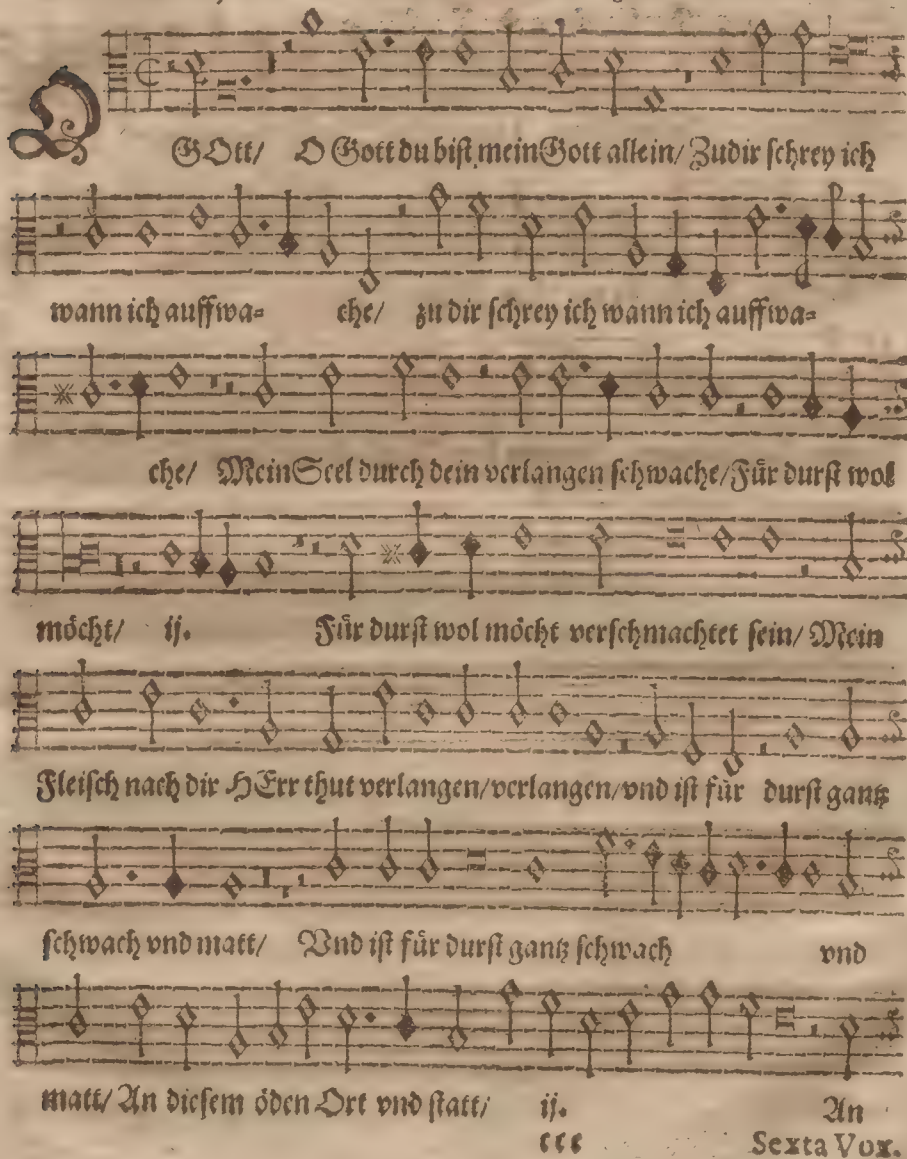 O
GOtt/ O Gott du bist mein Gott allein/ Zu dir schrey ich
wann ich auffwa= che/ zu dir schrey ich wann ich auffwa=
che/ Mein Seel durch dein verlangen schwache/ Für durst wol
möcht/ ij. Für durst wol möcht verschmachtet sein/ Mein
Fleisch nach dir HErr thut verlangen/ verlangen/ vnd ist für durst gantz
schwach vnd matt/ Vnd ist für durst gantz schwach vnd
matt/ An diesem öden Ort vnd statt/ ij. An
ccc Sexta Vox.